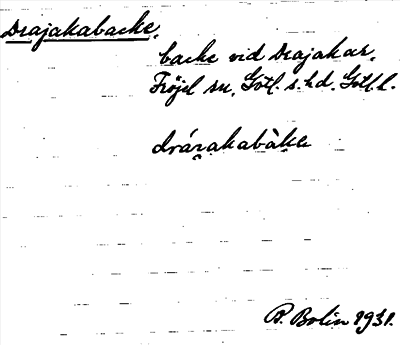 Drajakabacke,
backe vid Drajakar,
Fröjel sn, Gotl. s. hd. Gotl. l.
drárakabàke
P. Bolin 1931.